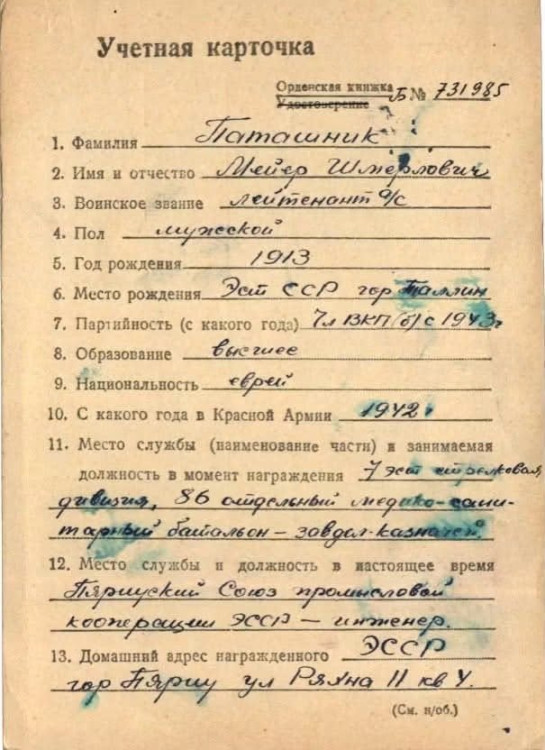 Учетная карточка
Орденская книжка
Удостоверение Б № 731985
1. Фамилия Паташник
2. Имя и отчество Мейер Шмерлович
3. Воинское звание лейтенант а/с
4. Пол мужской
5. Год рождения 1913
6. Место рождения Эст ССР гор Таллин
7. Партийность (с какого года) Чл ВКП(б) с 1943г
8. Образование высшее
9. Национальность еврей
10. С какого года в Красной Армии 1942
11. Место службы (наименование части) и занимаемая
должность в момент награждения 7 эст стрелковая
дивизия, 86 отдельный медико-сани-
тарный батальон – завдел-казначей.
12. Место службы и должность в настоящее время
Пярнуский Союз промысловой
кооперации ЭССР – инженер.
13. Домашний адрес награжденного ЭССР
гор Пярну ул Ряхна 11 кв 4.
(См. н/об.)